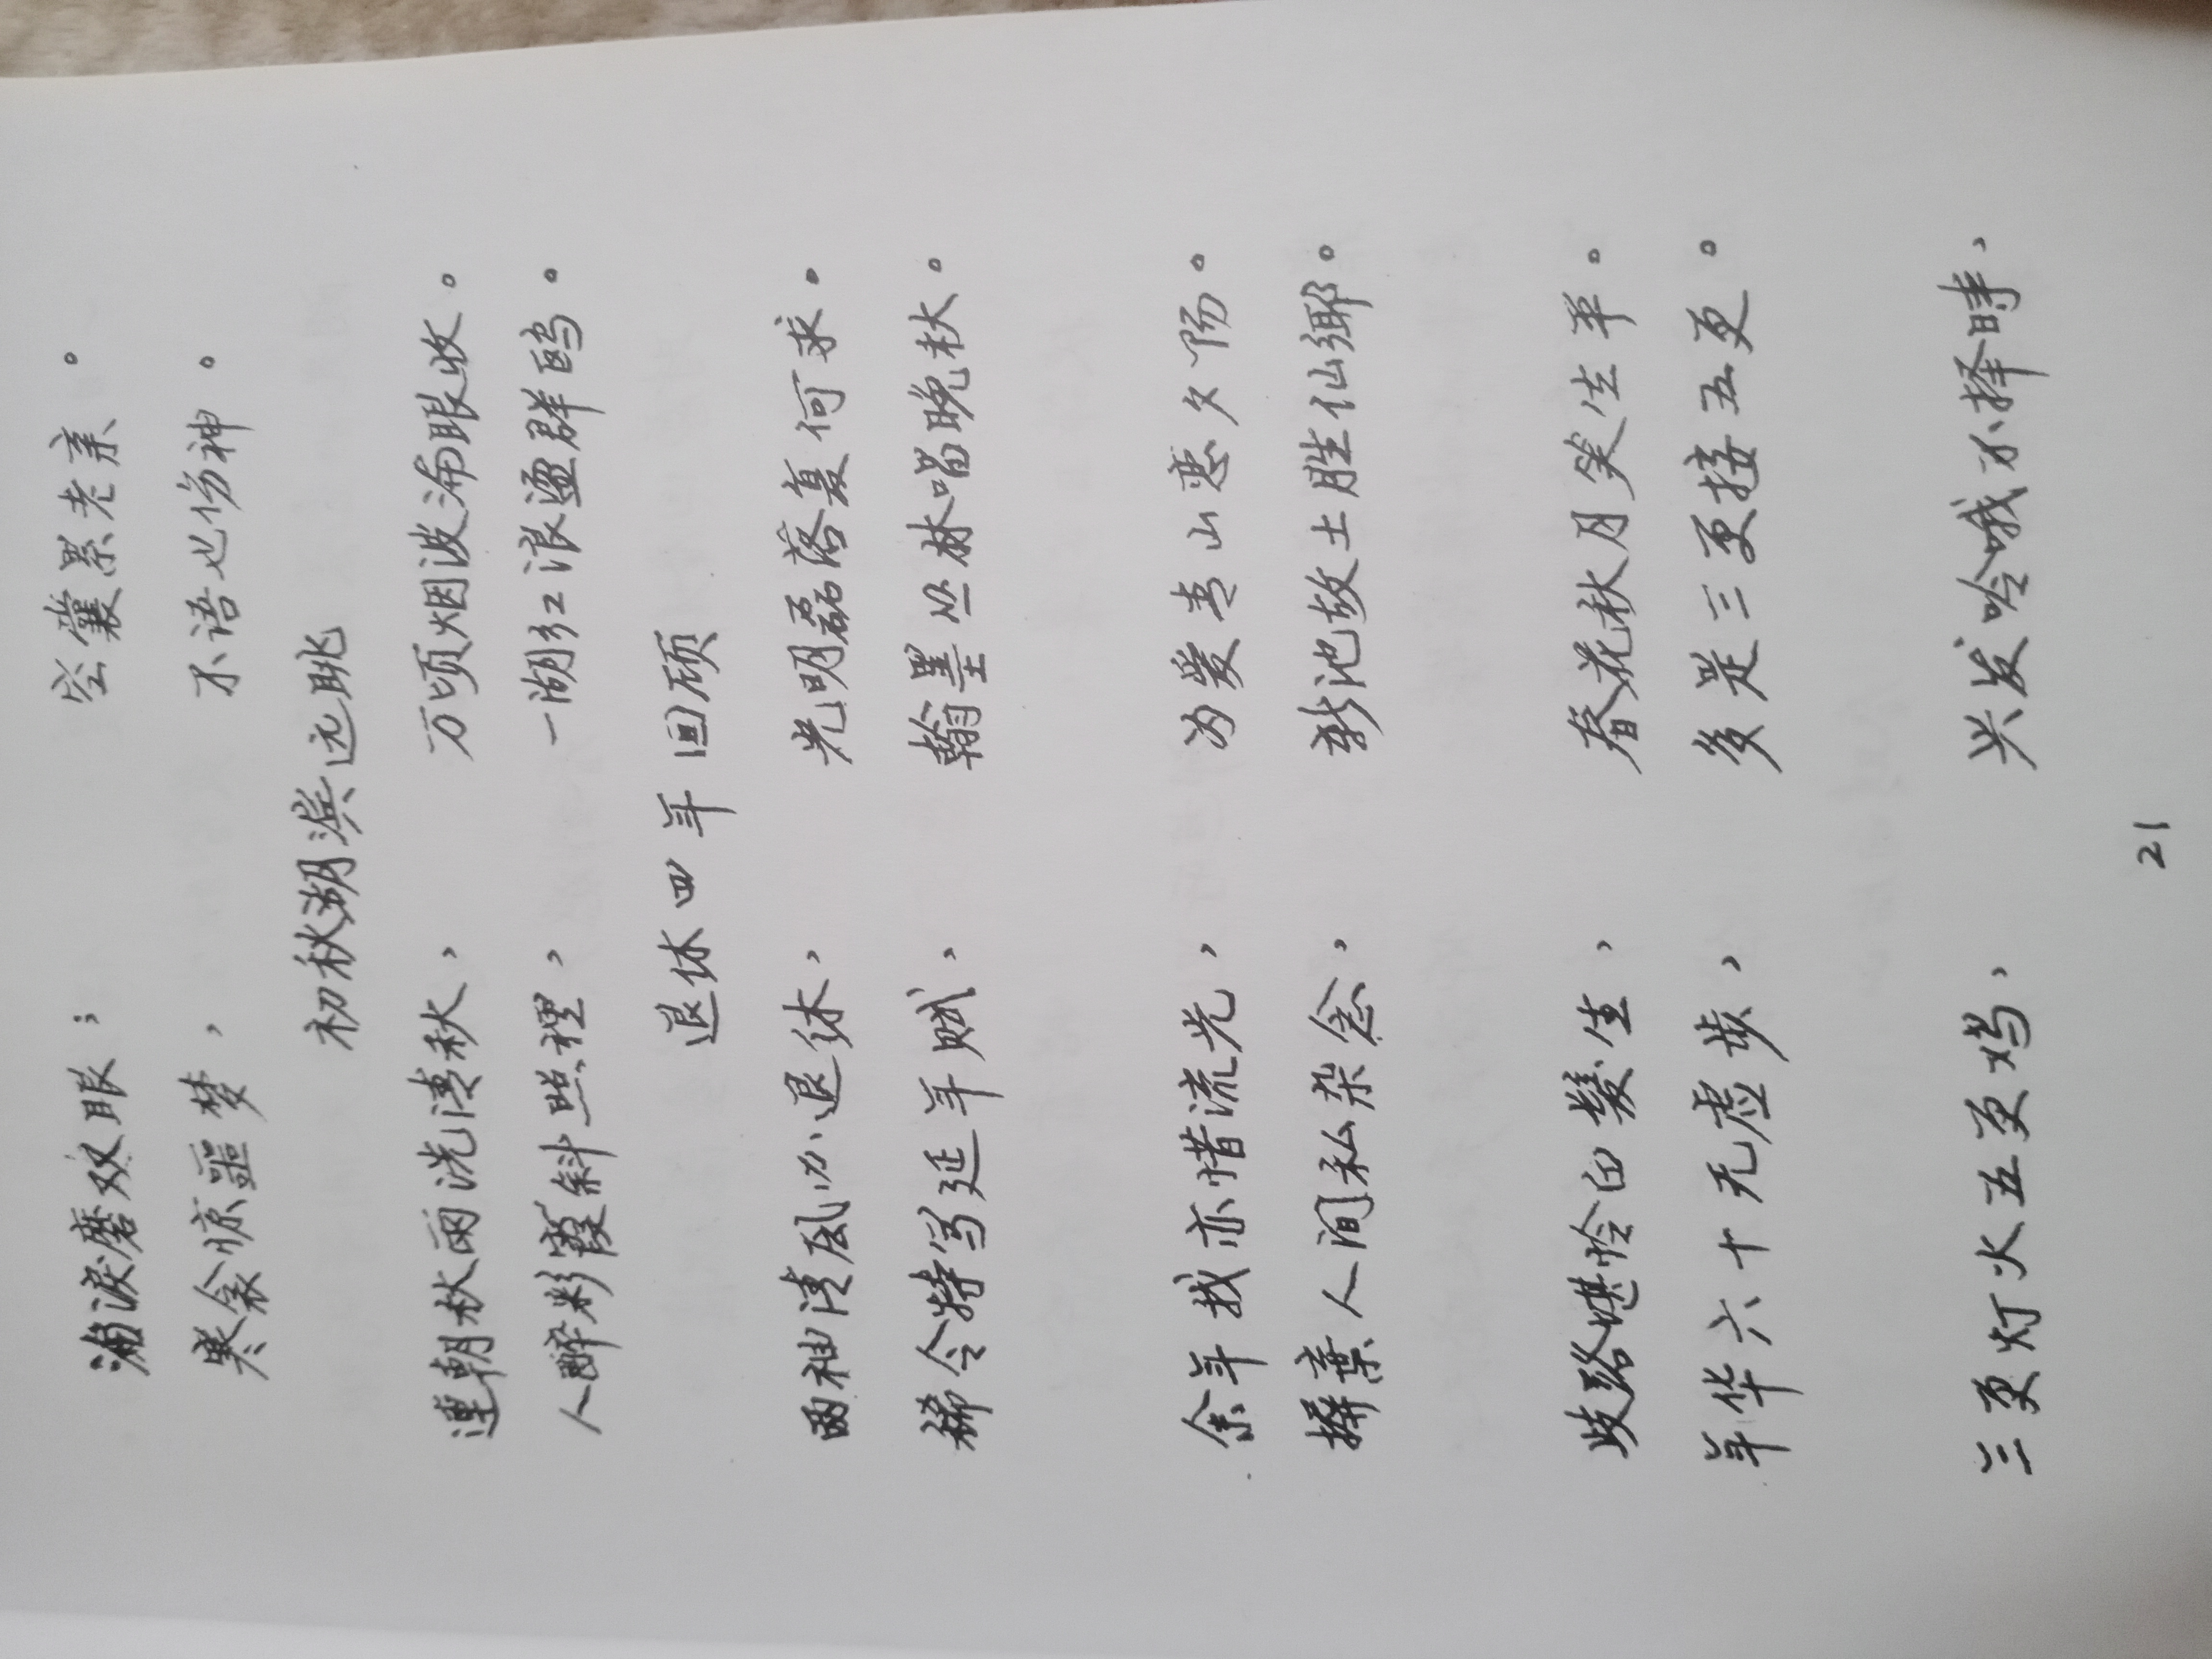 满淚磨双眼； 空囊累老亲。
寒衾惊噩梦， 不语也伤神。
初秋湖滨远眺
連朝秋雨洗清秋， 万顷烟波满眼收。
人醉彩霞斜照裡， 一湖红浪盪群鸥。
退休四年回顾
两袖清风办退休， 光明磊落复何求。
稀令特写延年赋， 翰墨丛林唱晚秋。
余年找亦惜流光， 为爱青山恋夕阳。
摒棄人间私杂念， 新池故土胜仙鄉。
歧路堪怜白髮生， 春花秋月笑生平。
年华六十无虚步， 多是三更接五更。
三更灯火五更鸡， 兴发吟哦不择時，
21